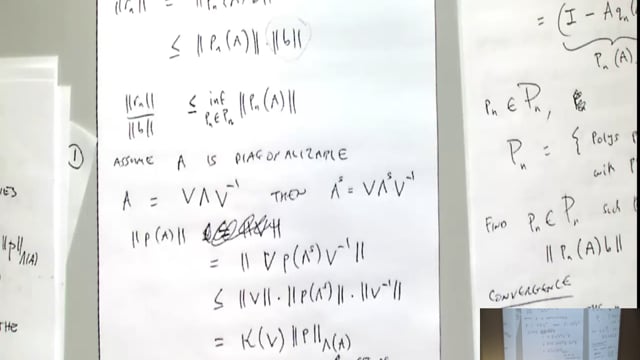 ≤ ||Pn(A)|| · ||b||
||rn|| / ||b|| ≤ inf Pn∈Pn ||Pn(A)||
① ASSUME A IS DIAGONALIZABLE
A = VΛV⁻¹ THEN Aˢ = VΛˢV⁻¹
||P(A)||
= || V P(Λˢ) V⁻¹ ||
≤ ||V|| · ||P(Λˢ)|| · ||V⁻¹||
= K(V) ||P||Λ(A)
= (I - Aqn(
Pn(A)
Pn ∈ Pn,
Pn = { Polys
with
FIND Pn ∈ Pn such
|| Pn(A)b ||
CONVERGENCE
||P||Λ(A)
THE